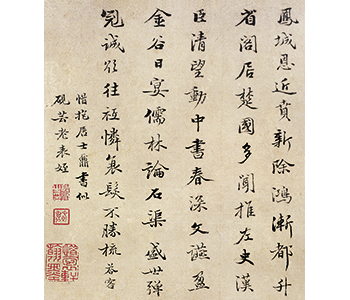 鳳城恩近賁新除鴻漸都升
省閣居楚國多聞推左史漢
臣清望動中書春深文讌盈
金谷日宴儒林論石渠盛世彈
冠誠欲往祗憐衰髮不勝梳
惜抱居士鼐書似
硯芸老表姪